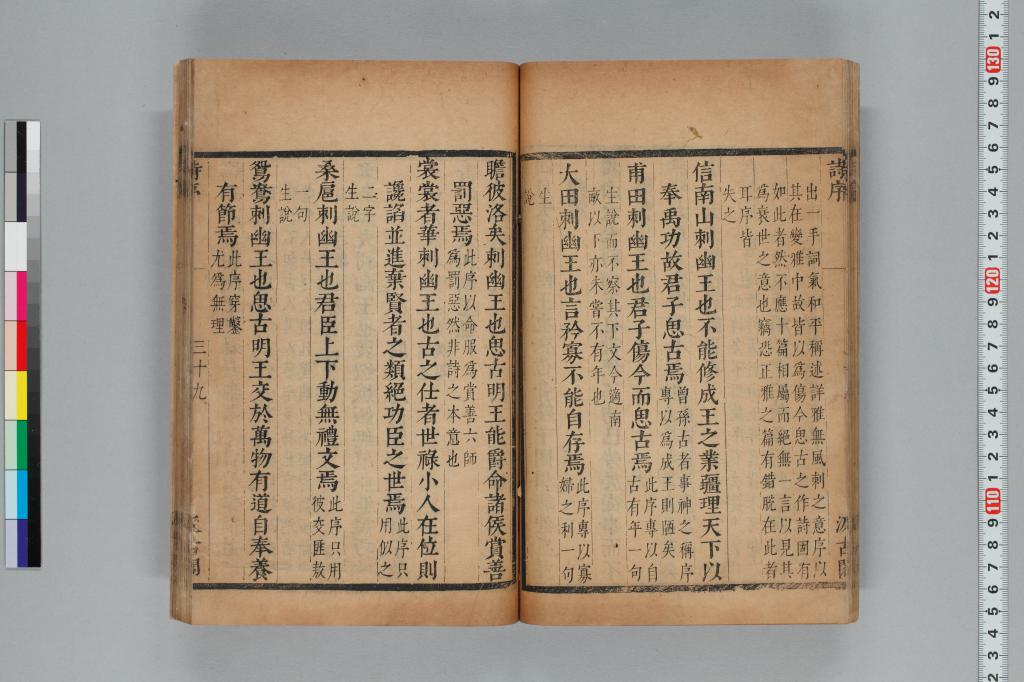 詩序
汲古閣
出一手詞氣和平稱述詳雅無風刺之意序以
其在變雅中故皆以爲傷今思古之作詩固有
如此者然不應十篇相屬而絕無一言以見其
爲衰世之意也竊恐正雅之篇有錯脫在此者
耳序皆
失之
信南山刺幽王也不能修成王之業疆理天下以
奉禹功故君子思古焉曾孫古者事神之稱序
專以爲成王則陋矣
甫田刺幽王也君子傷今而思古焉此序專以自
古有年一句
生說而不察其下文今適南
畝以下亦未嘗不有年也
大田刺幽王也言矜寡不能自存焉此序專以寡
婦之利一句
生
說
瞻彼洛矣刺幽王也思古明王能爵命諸侯賞善
罰惡焉此序以命服爲賞善六師
爲罰惡然非詩之本意也
裳裳者華刺幽王也古之仕者世祿小人在位則
讒諂並進棄賢者之類絕功臣之世焉此序只
用似之
二字
生說
桑扈刺幽王也君臣上下動無禮文焉此序只用
彼交匪敖
一句
生說
鴛鴦刺幽王也思古明王交於萬物有道自奉養
有節焉此序穿鑿
尤爲無理
三十九